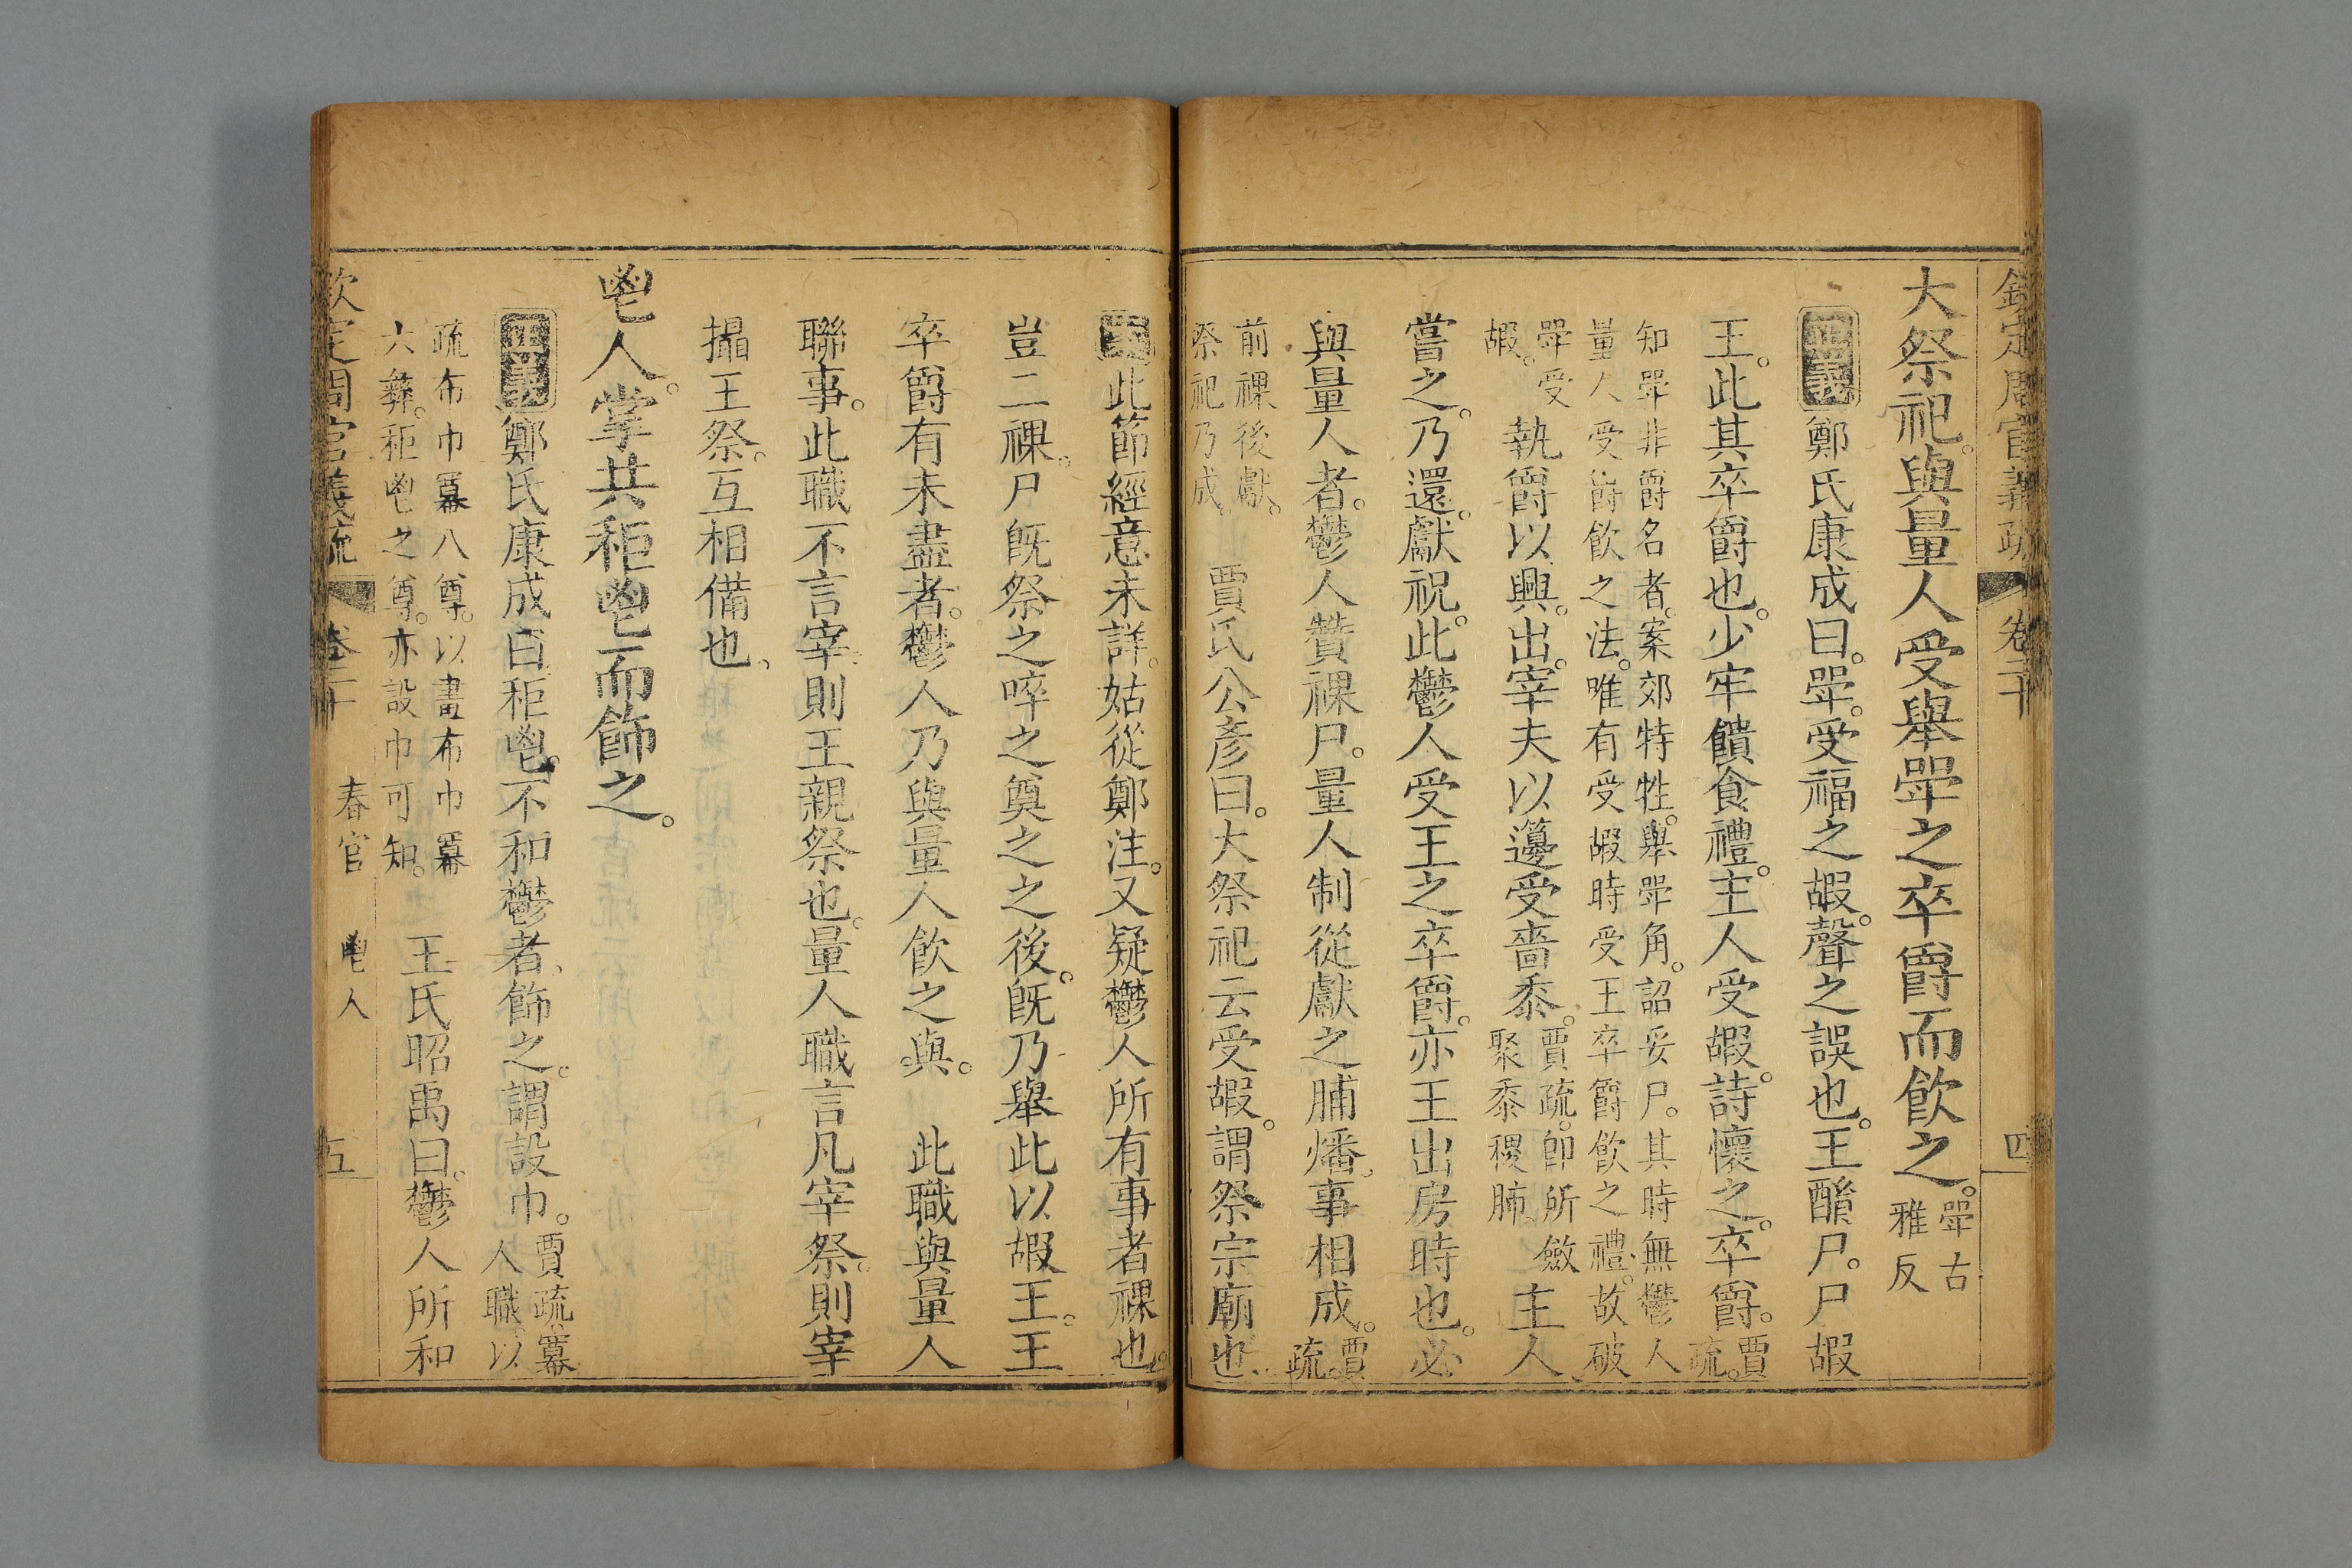 欽定周官義疏 卷二十 四
大祭祀。與量人受舉斝之卒爵而飲之。斝古雅反
正義鄭氏康成曰。斝。受福之嘏。聲之誤也。王酳尸。尸嘏
王。此其卒爵也。少牢饋食禮。主人受嘏。詩懷之。卒爵。賈疏。
知斝非爵名者。案郊特牲。舉斝角。詔妥尸。其時無鬱人
量人受爵飲之法。唯有受嘏時受王卒爵飲之禮。故破
斝受嘏。執爵以興。出。宰夫以籩受嗇黍。賈疏。卽所斂聚黍稷肺。主人
嘗之。乃還。獻祝。此鬱人受王之卒爵。亦王出房時也。必
與量人者。鬱人贊祼尸。量人制從獻之脯燔。事相成。賈疏。
前祼後獻。祭祀乃成。 賈氏公彥曰。大祭祀云受嘏。謂祭宗廟也。
案此節經意未詳。姑從鄭注。又疑鬱人所有事者祼也。
豈二祼。尸旣祭之啐之奠之之後。旣乃舉此以嘏王。王
卒爵有未盡者。鬱人乃與量人飲之與。 此職與量人
聯事。此職不言宰。則王親祭也。量人職言凡宰祭。則宰
攝王祭。互相備也。
鬯人。掌共秬鬯而飾之。
正義鄭氏康成曰。秬鬯。不和鬱者。飾之。謂設巾。賈疏。冪人職。以
疏布巾冪八尊。以畫布巾冪
六彝。秬鬯之尊。亦設巾可知。 王氏昭禹曰。鬱人所和
欽定周官義疏 卷二十 春官 鬯人 五